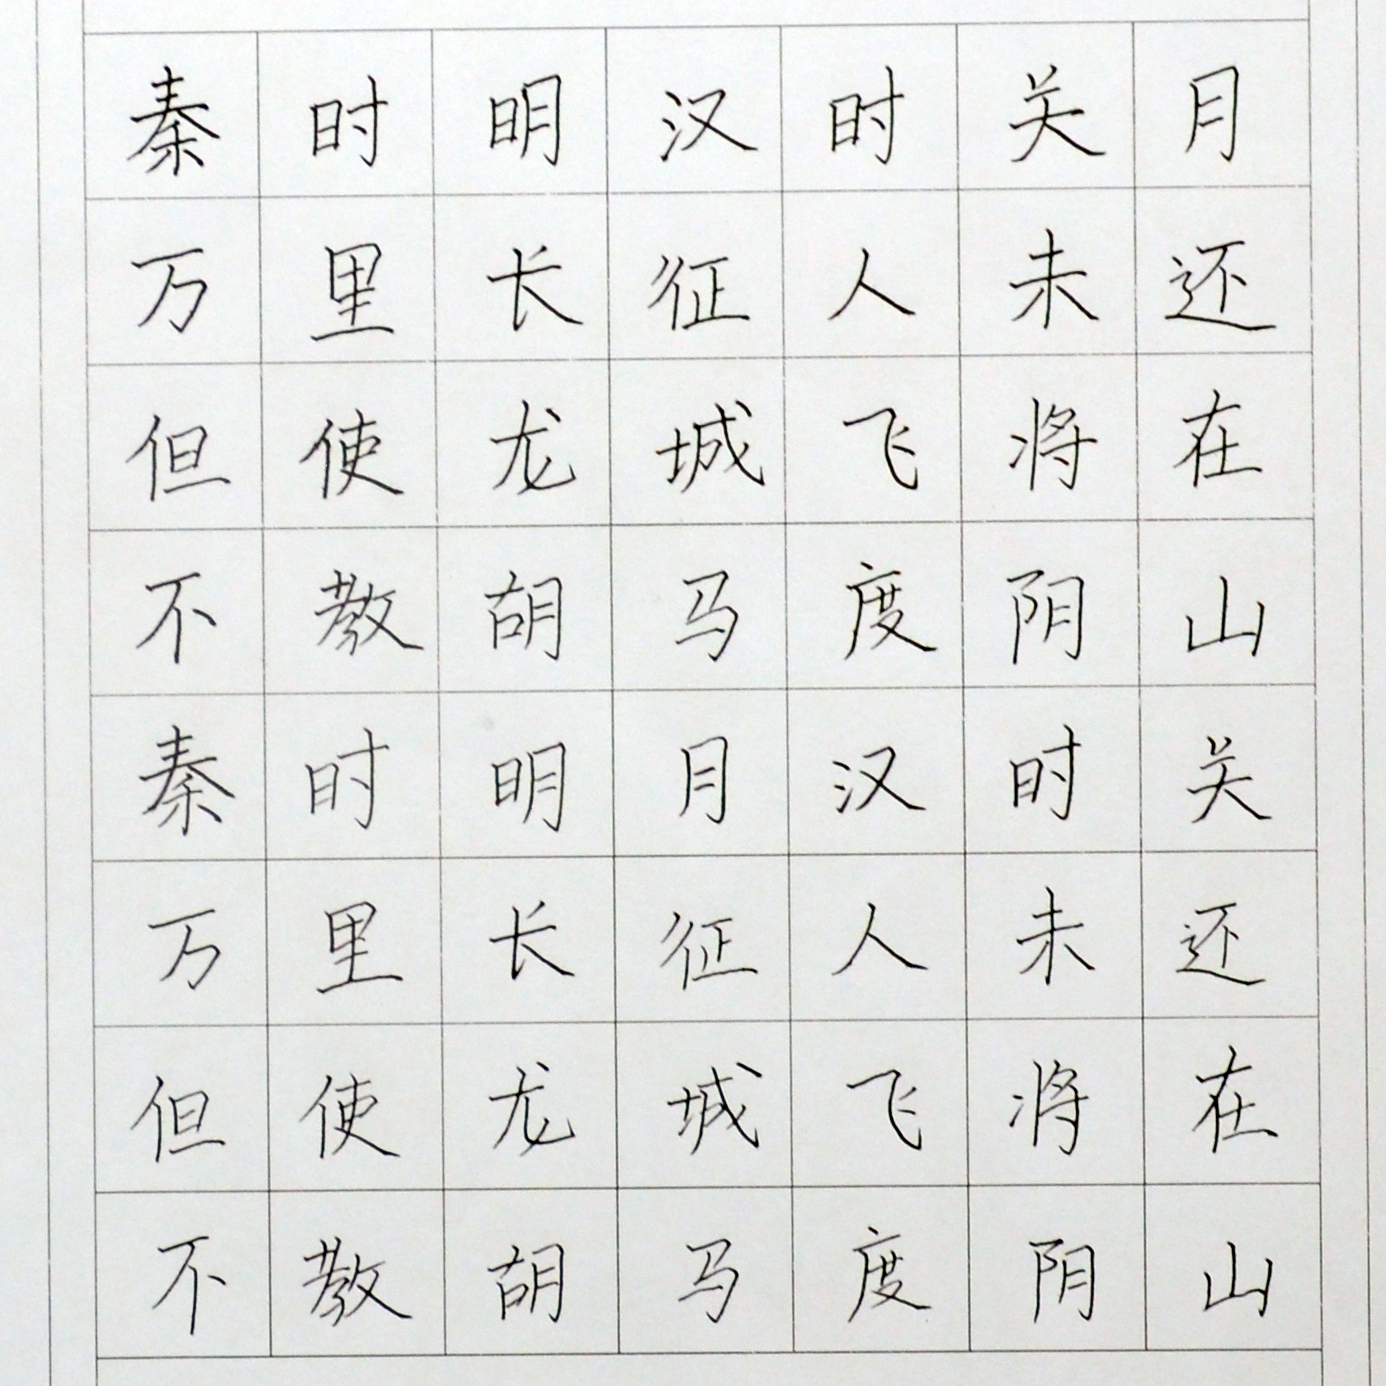 秦时明汉时关月
万里长征人未还
但使龙城飞将在
不教胡马度阴山
秦时明月汉时关
万里长征人未还
但使龙城飞将在
不教胡马度阴山